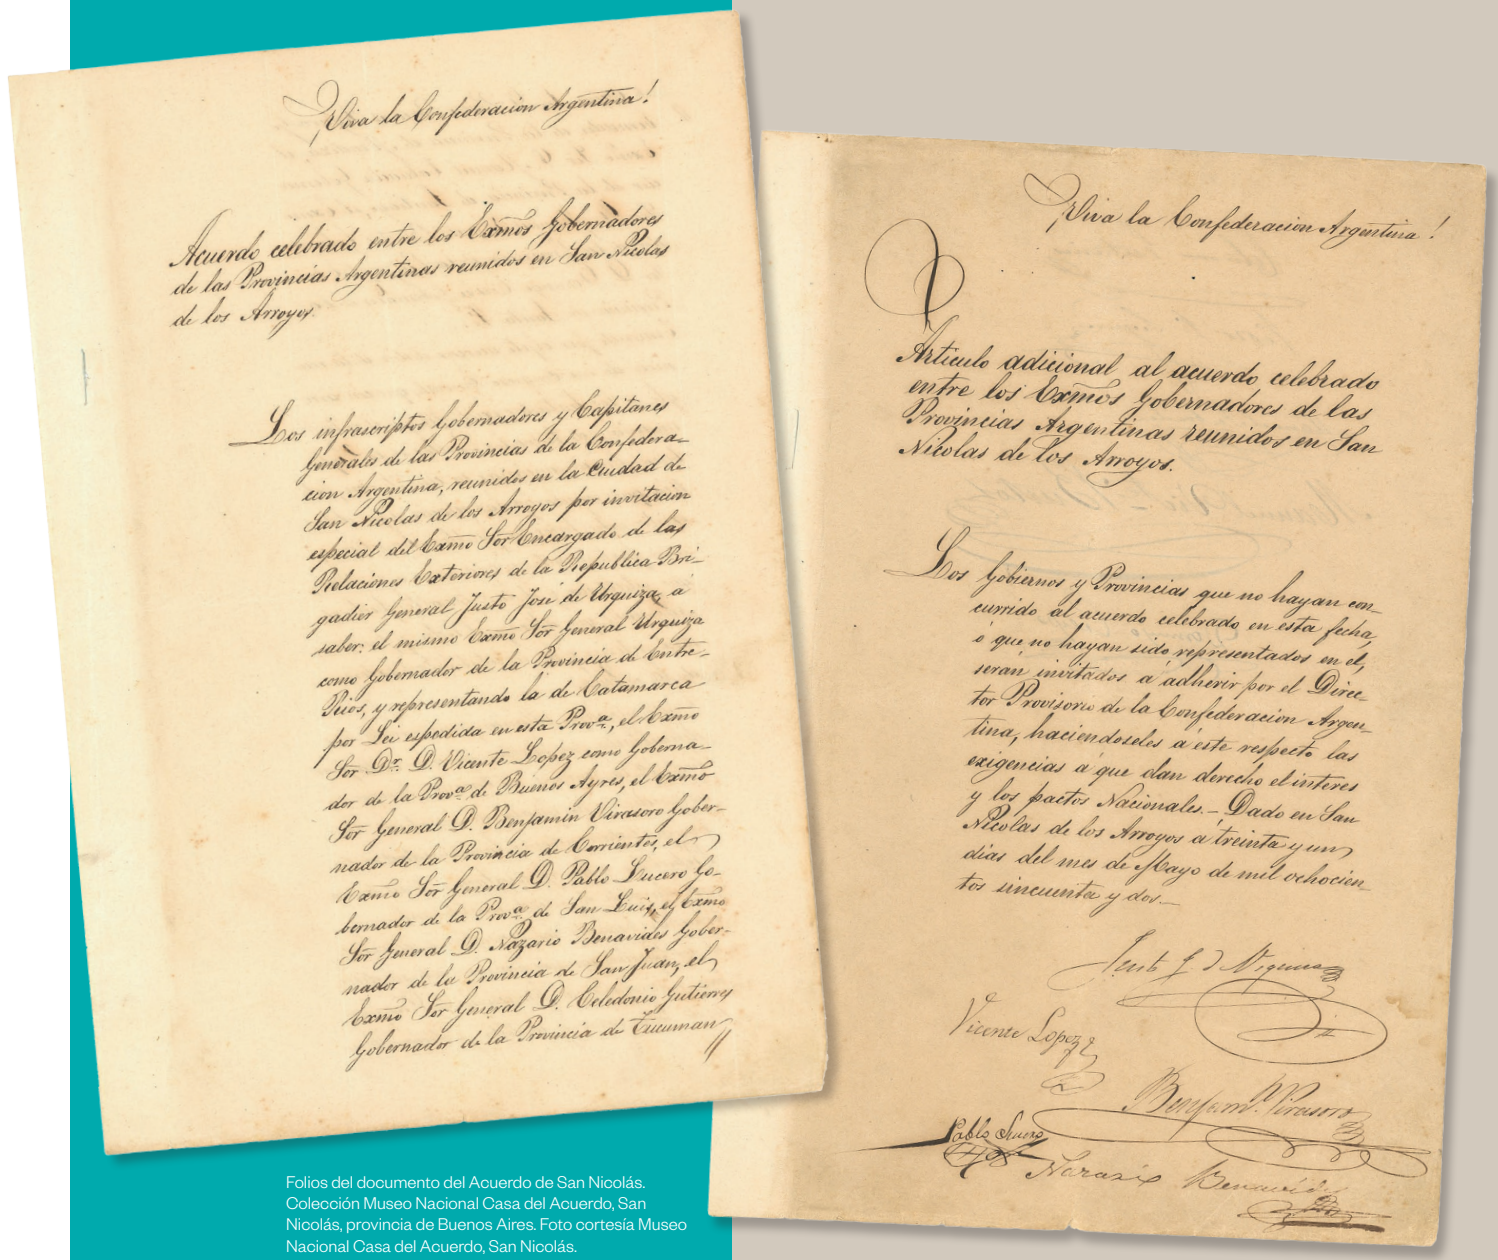 ¡Viva la Confederacion Argentina!
Acuerdo celebrado entre los Exmos Gobernadores
de las Provincias Argentinas reunidos en San Nicolas
de los Arroyos.
Los infrascriptos Gobernadores y Capitanes
Generales de las Provincias de la Confedera-
cion Argentina, reunidos en la Ciudad de
San Nicolas de los Arroyos por invitacion
especial del Exmo Sor Encargado de las
Relaciones Exteriores de la Republica Bri-
gadier General Justo José de Urquiza, á
saber: el mismo Exmo Sor General Urquiza
como Gobernador de la Provincia de Entre-
Rios, y representando la de Catamarca
por Lei espedida en esta Prova, el Exmo
Sor Dr. D. Vicente Lopez como Goberna-
dor de la Prova de Buenos Ayres, el Exmo
Sor General D. Benjamin Virasoro Gober-
nador de la Provincia de Corrientes, el
Exmo Sor General D. Pablo Lucero Go-
bernador de la Prova de San Luis, el Exmo
Sor General D. Nazario Benavides Gober-
nador de la Provincia de San Juan, el
Exmo Sor General D. Celedonio Gutierres
Gobernador de la Provincia de Tucuman
¡Viva la Confederacion Argentina!
Articulo adicional al acuerdo celebrado
entre los Exmos Gobernadores de las
Provincias Argentinas reunidos en San
Nicolas de los Arroyos.
Los Gobiernos y Provincias que no hayan con-
currido al acuerdo celebrado en esta fecha,
ó que no hayan sido representados en él,
serán invitados á adherir por el Direc-
tor Provisorio de la Confederacion Argen-
tina, haciendoseles á este respecto las
exigencias a que dan derecho el interes
y los pactos Nacionales. - Dado en San
Nicolas de los Arroyos á treinta y un
dias del mes de Mayo de mil ochocien-
tos sincuenta y dos.-
Justo J. d Urquiza
Vicente Lopez
Benjamn. Virasoro
Pablo Lucero
Nazario Benavides
Folios del documento del Acuerdo de San Nicolás.
Colección Museo Nacional Casa del Acuerdo, San
Nicolás, provincia de Buenos Aires. Foto cortesía Museo
Nacional Casa del Acuerdo, San Nicolás.